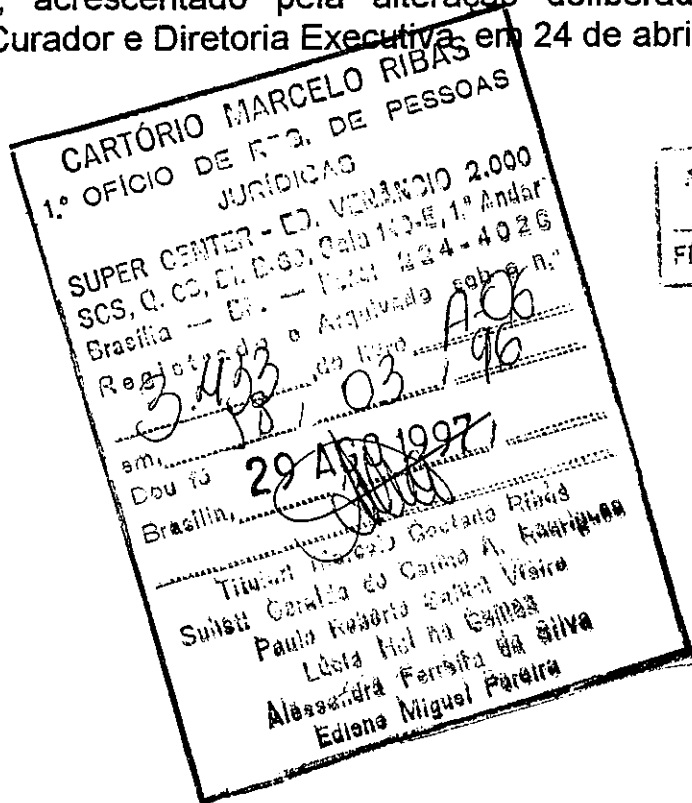 , acrescentado pela alteração deliberad
Curador e Diretoria Executiva, em 24 de abri
CARTÓRIO MARCELO RIBAS
1.º OFÍCIO DE REG. DE PESSOAS
JURÍDICAS
SUPER CENTER - ED. VENÂNCIO 2.000
SCS, Q. 08, Bl. B-60, Sala 140-E, 1.º Andar
Brasília — DF. — Fone: 224-4026
Registrado e Arquivado sob o n.º
3.433 do livro A-06
em, 18 / 03 / 96
Dou fé
Brasília, 29 AGO 1997
Titular: Marcelo Caetano Ribas
Subst: Geralda do Carmo A. Rodrigues
Paulo Roberto Vieira
Lúcia
Alessandra Ferreira da Silva
Edlene Miguel Pereira